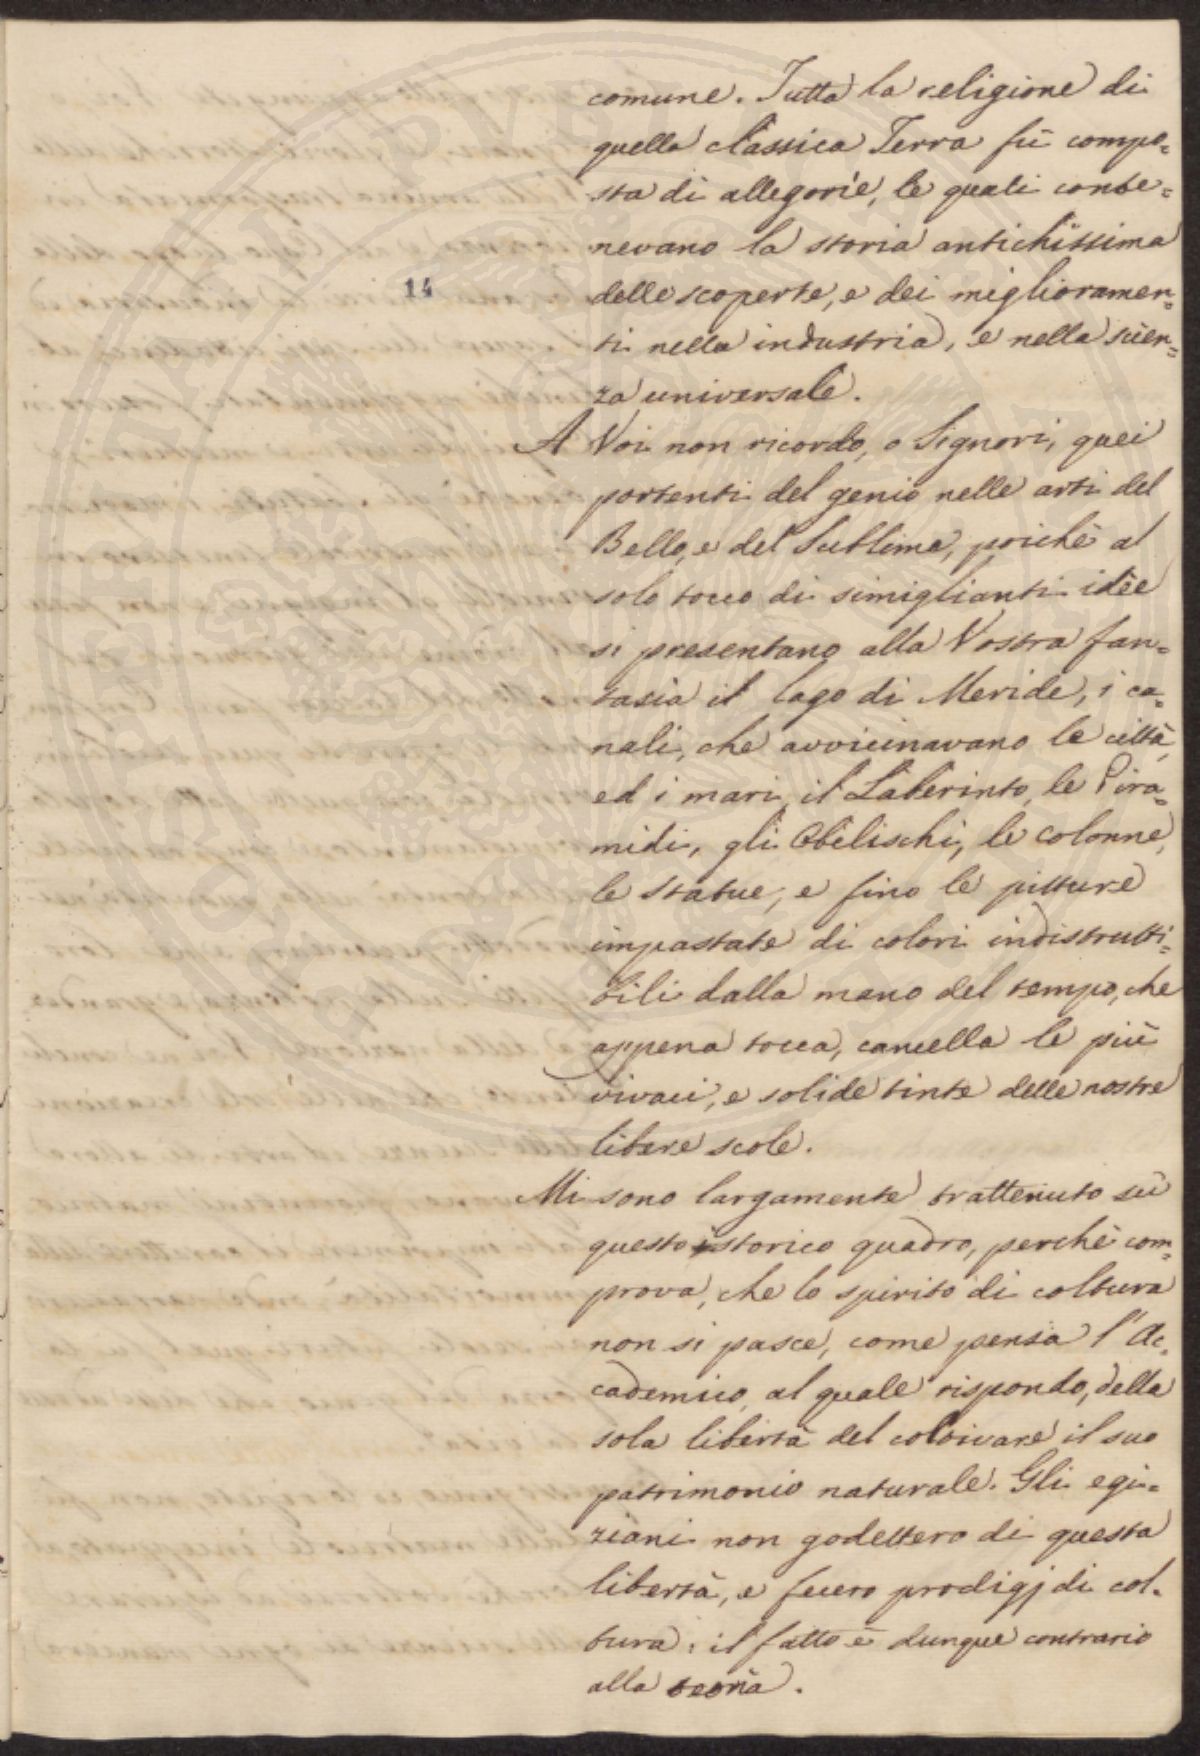 comune. Tutta la religione di
quella classica Terra fù compo=
sta di allegorie, le quali conte=
nevano la storia antichissima
14
delle scoperte, e dei miglioramen=
ti nella industria, e nella scien=
za universale.
A Voi non ricordo, o Signori, quei
portenti del genio nelle arti del
Bello, e del Sublime, poichè al
solo tocco di simiglianti idèe
si presentano alla Vostra fan=
tasia il lago di Meride, i ca=
nali, che avvicinavano le città,
ed i mari, il Laberinto, le Pira=
midi, gli Obelischi, le colonne,
le statue, e fino le pitture
impastate di colori indistrutti=
bili dalla mano del tempo, che
appena tocca, cancella le più
vivaci, e solide tinte delle nostre
libere scole.
Mi sono largamente trattenuto sù
questo istorico quadro, perchè com=
prova, che lo spirito di coltura
non si pasce, come pensa l'Ac=
cademico, al quale rispondo, della
sola libertà del coltivare il suo
patrimonio naturale. Gli egi=
ziani non godettero di questa
libertà, e fecero prodigj di col=
tura: il fatto è dunque contrario
alla teoria.